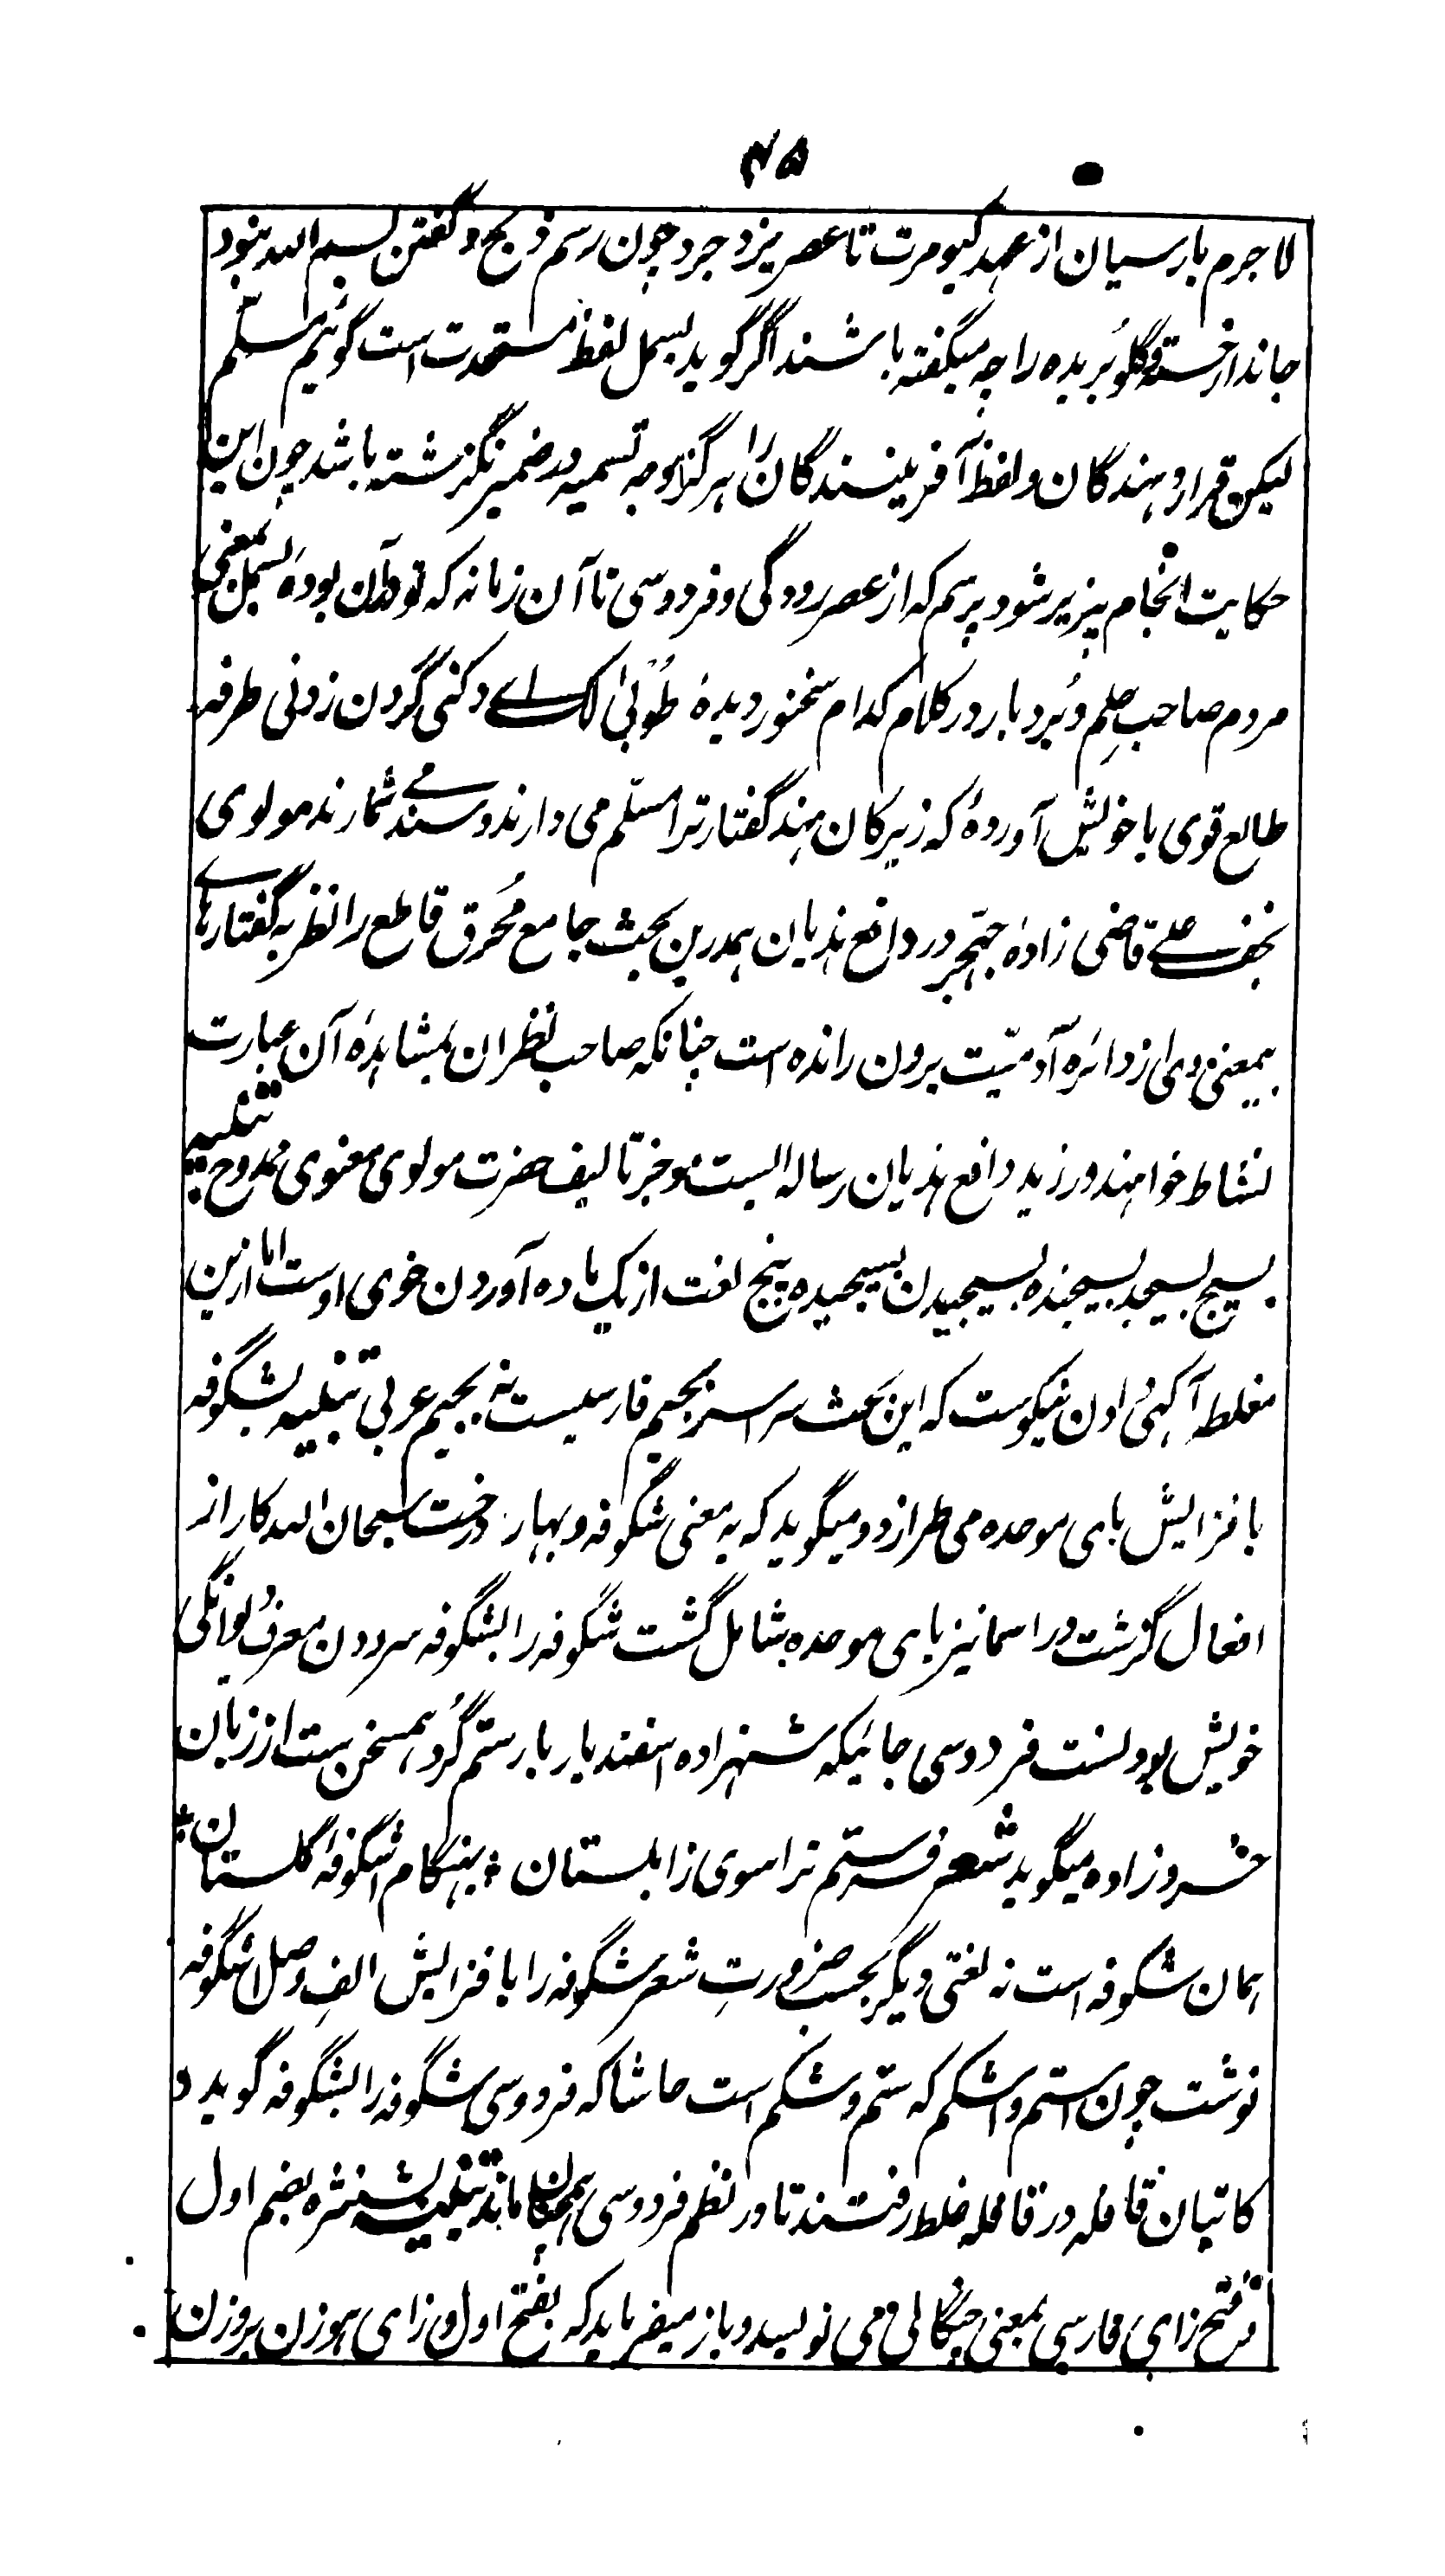 ۴۵
لاجرم پارسیان از عهد کیومرت تا عصر یزدجرد چون رسم ذبح و گفتن بسم الله نبود
جاندار خسته و گلو بُریده را چه میگفته باشند اگر گوید بسمل لفظ مستحدث است گوئیم مسلّم
لیکن قرار دهندگان و لفظ آفرینندگان را هرگز وجه تسمیه در ضمیر نگزشته باشد چون این
حکایت انجام پزیر شود پرسم که از عصر رودگی و فردوسی تا آن زمانه که تو دران بودهٔ بسمل بمعنی
مردم صاحبِ حلم و بُردبار در کلام کدام سخنور دیدهٔ طُوبیٰ لک اے دکنی گردن زدنی طرفه
طالع قوی با خویش آوردهٔ که زیرکان هند گفتار ترا مسلّم می دارند و سند می شمارند مولوی
نجف علے قاضی زادهٔ جهجّر در دافع هذیان همدرین بحث جامع مُحرق قاطع را نظر به گفتارهاے
بیمعنی وی از دائرهٔ آدمیّت برون رانده است چنانکه صاحب نظران بمشاهدهٔ آن عبارت
نشاط خواهند ورزید دافع هذیان رساله ایست موجز تالیف حضرت مولوی معنوی ممدوح تنبیه
بسیج بسیجد بسیجنده بسیجیدن بسیجیده پنج لغت از یک ماده آوردن خوی اوست اما ازین
مغلطه آگهی دادن نیکوست که این بحث سراسر بجیم فارسیست نه بجیم عربی تنبیه بشگوفه
بافزایش بای موحده می طرازد و میگوید که به معنی شگوفه و بهار درخت سبحان الله کار از
افعال گزشت در اسما نیز بای موحده شامل گشت شگوفه را بشگوفه سرودن معرف دیوانگی
خویش بودنست فردوسی جائیکه شهزاده اسفندیار با رستم گُرد همسخن ست از زبان
خسروزاده میگوید شعر فرستم ترا سوی زابلستان ؛ بهنگام اشگوفهٔ گلستان ؛
همان شگوفه است نه لغتی دیگر بحسب ضرورتِ شعر شگوفه را بافزایش الفِ وصل اشگوفه
نوشت چون استم و اشکم که ستم و شکم است حاشا که فردوسی شگوفه را بشگوفه گوید و
کاتبان قافله در قافله غلط رفتند تا در نظم فردوسی همچنان ماند تنبیه بشنژه بضم اول
و فتح زای فارسی بمعنی چنگالی می نویسد و باز میفرماید که بفتح اول و زای هوز بر وزن